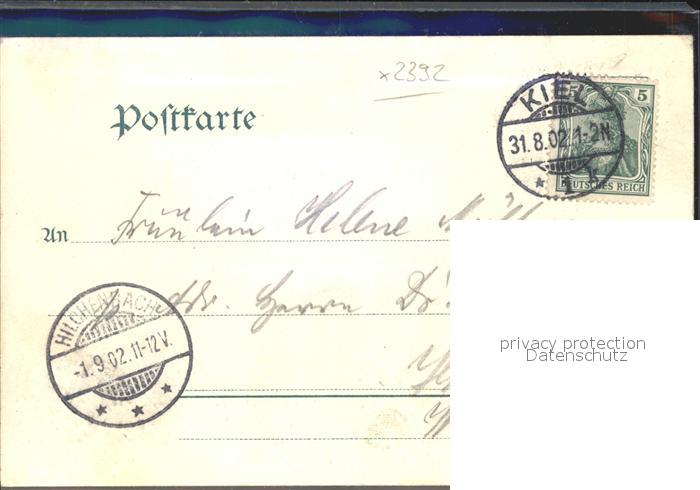 x2392
KIEL
31.8.02.1-2N
* 1 k
5 5
DEUTSCHES REICH
Postkarte
An Fräulein Helene
Adr. Herrn Dr.
HILCHENBACH
-1.9.02.11-12V.
* * *
privacy protection
Datenschutz